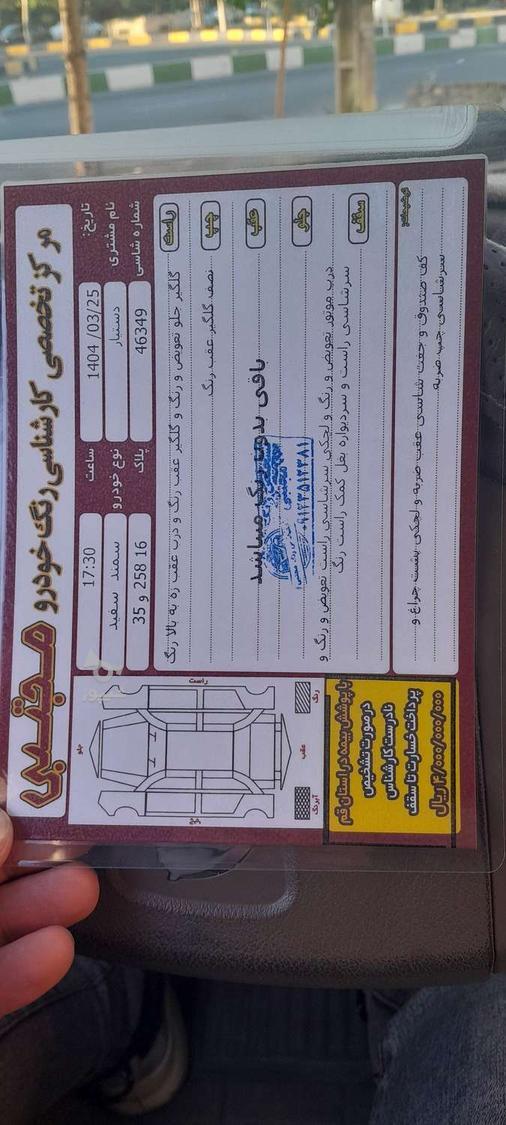 مرکز تخصصی کارشناسی رنگ خودرو مجتبی
تاریخ: 1404 /03/25 ساعت 17:30
نام مشتری دستیار نوع خودرو سمند سفید
شماره شاسی 46349 پلاک 16 258 و 35
راست گلگیر جلو تعویض و رنگ و گلگیر عقب رنگ و درب عقب زه به بالا رنگ
چپ نصف گلگیر عقب رنگ
عقب باقی بدون رنگ میباشد
جلو درب موتور تعویض و رنگ و لچکی سرشاسی راست تعویض و رنگ و
سقف سرشاسی راست و سردیواره بغل کمک راست رنگ
توضیحات: کف صندوق و جفت شاسی عقب ضربه و لچکی پشت چراغ و
سرشاسی چپ ضربه
راست
جلو
عقب
چپ
رنگ
آبرنگ
با پوشش بیمه در استان قم
در صورت تشخیص
نادرست کارشناس
پرداخت خسارت تا سقف
۴/۰۰۰/۰۰۰/۰۰۰ ریال
شیپور